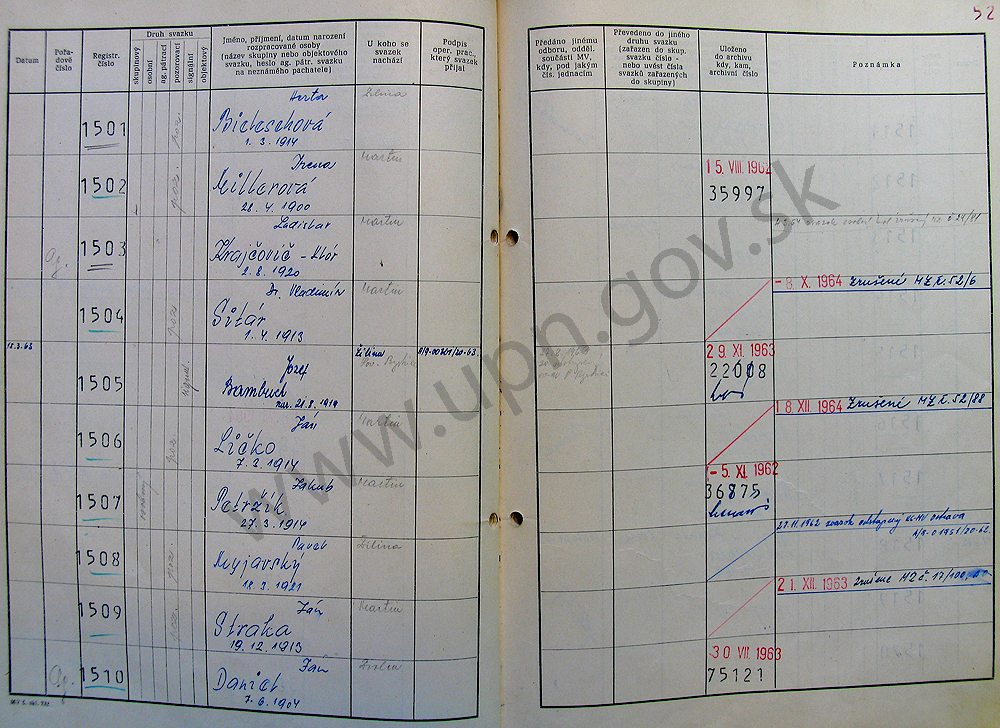 52
Datum
Pořadové číslo
Registr. číslo
Druh svazku
skupinový
osobní
ag. pátrací
pozorovací
signální
objektový
Jméno, příjmení, datum narození
rozpracované osoby
(název skupiny nebo objektového
svazku, heslo ag. pátr. svazku
na neznámého pachatele)
U koho se
svazek
nachází
Podpis
oper. prac.,
který svazek
přijal
Předáno jinému
odboru, odděl.
součásti MV,
kdy, pod jakým
čís. jednacím
Převedeno do jiného
druhu svazku
(zařazen do skup.
svazku číslo -
nebo uvést čísla
svazků zařazených
do skupiny)
Uloženo
do archivu
kdy, kam,
archivní číslo
Poznámka
1501 poz. Herta Žilina
Bieleschová
1. 3. 1914
1502 poz. Irena Martin 15. VIII. 1962
Millerová 35997
28. 4. 1900
Ag. 1503 Ladislav Martin
Krajčovič - Utór
2. 8. 1920
1504 poz. Dr. Vladimír Martin - 8. X. 1964 Zrušené MZ č. 52/6
Sitár
1. 4. 1913
18.3.63 1505 signál. Jozef Žilina 29. XI. 1963
Bambuch 22008
nar. 21.8.1919
1506 poz. Ján Martin 18. XII. 1964 Zrušené MZ č. 52/88
Ličko
7. 3. 1914
1507 osobný Jakub Martin - 5. XI. 1962
Petržík 36875
27. 3. 1914
1508 poz. Pavel Žilina 27.11.1962 svazok odstúpený KS-MV Ostrava
Myjavský
18. 3. 1921
1509 poz. Ján Martin 21. XII. 1963 Zrušené MZ č. 17/100
Straka
19. 12. 1913
Ag. 1510 Ján Zvolen 30 VII 1963
Daniel 75121
7. 6. 1904
www.upn.gov.sk